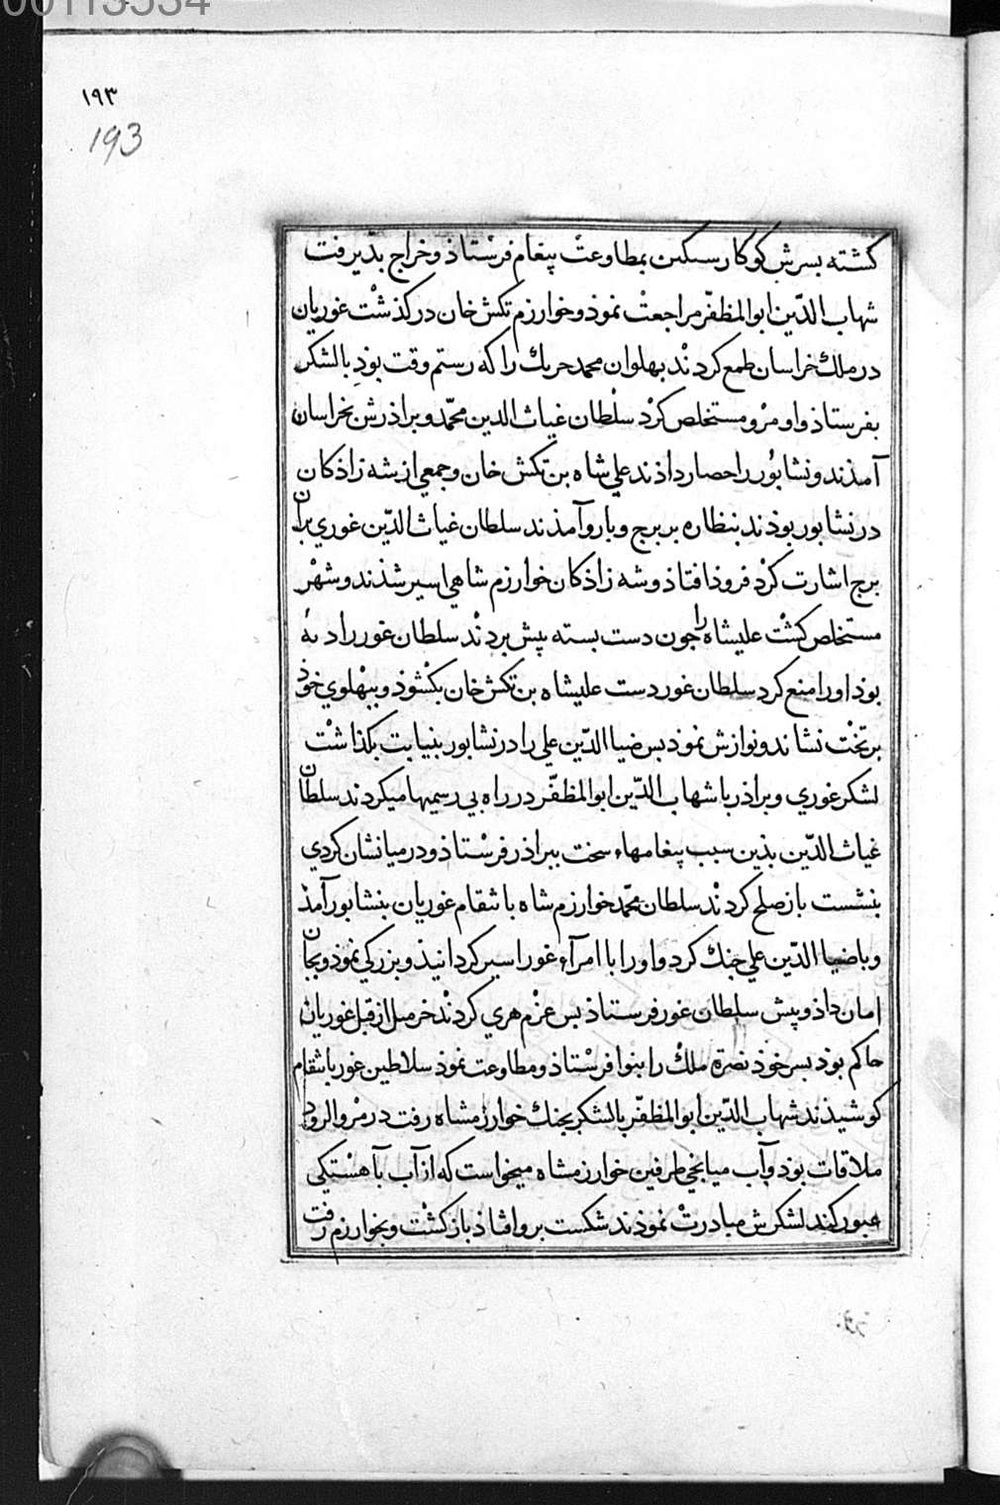 00113534
١٩٣
193
کشته بسرش کوکار سکین بمطاوعت پیغام فرستاذ و خراج بذیرفت
شهاب الدّین ابوالمظفّر مراجعت نموذ و خوارزم تکش خان در کذشت غوریان
در ملک خراسان طمع کردند بهلوان محمد حربك را که رستم وقت بوذ بالشکر
بفرستاذ و او مرو مستخلص کرد سلطان غیاث الدین محمّد و براذرش بخراسان
آمذند و نشابور را حصار داذند علی شاه بن تکش خان و جمعی از شه زاذکان
در نشابور بوذند بنظاره بر برج و بارو آمذند سلطان غیاث الدّین غوري بران
برج اشارت کرد فروذ افتاذ و شه زاذکان خوارزم شاهی اسیر شذند و شهر
مستخلص کشت علیشاه را جون دست بسته پیش بردند سلطان غور را دایه
بوذ او را منع کرد سلطان غور دست علیشاه بن تکش خان بکشوذ و ببهلوي خوذ
بر تخت نشاند و نوازش نموذ بس ضیا الدّین علی را در نشابور بنیابت بکذاشت
لشکر غوري و براذر با شهاب الدّین ابوالمظفّر در راه بی رسمیها میکردند سلطان
غیاث الدّین بذین سبب پیغامهاء سخت ببراذر فرستاذ و در میانشان کردي
بنشست باز صلح کردند سلطان محمّد خوارزم شاه بانتقام غوریان بنشابور آمذ
و باضیا الدّین علی جنك کرد و او را با امرآء غور اسیر کردانیذ و بزرکی نموذ و بجان
امان داذ و پیش سلطان غور فرستاذ بس عزم هري کردند خرمیل از قبل غوریان
حاکم بوذ بسر خوذ نصرة ملك را بنوا فرستاذ و مطاوعت نموذ سلاطین غور بانتقام
کوشیذند شهاب الدّین ابوالمظفّر بالشکر بجنك خوارزمشاه رفت در مرو الروذ
ملاقات بوذ و آب میانجی طرفین خوارزمشاه میخواست که از آب بآهستکی
عبور کند لشکرش مبادرت نموذند شکست برو افتاذ باز کشت و بخوارزم رفت